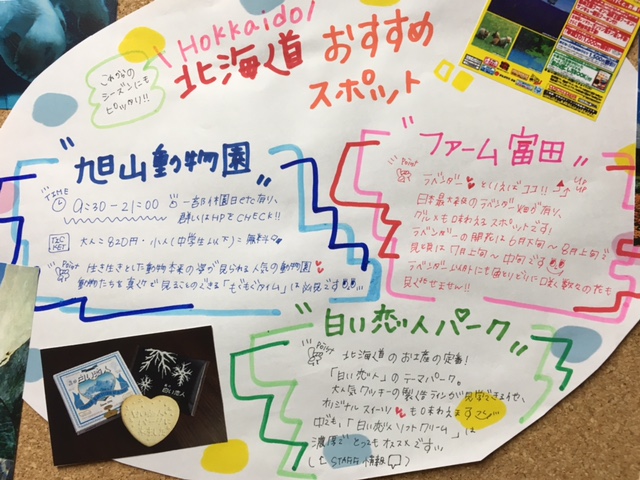 Hokkaido!
北海道 おすすめ
スポット
これからの
シーズンにも
ピッタリ!!
"旭山動物園"
TIME
9:30-21:00 一部休園日など有り、
詳しいはHPをCHECK!!
TICKET
大人:820円・小人(中学生以下):無料
Point
生き生きとした動物本来の姿が見られる人気の動物園
動物たちを真近で見ることのできる「もぐもぐタイム」は必見です
"ファーム富田"
Point
ラベンダー といえばココ!!
日本最大級のラベンダー畑が有り、
グルメも味わえるスポットです!
ラベンダーの開花は6月下旬〜8月上旬で
見頃は7月上旬〜中旬です
ラベンダー以外にも色とりどりに咲く数々の花も
見逃せません!!
"白い恋人パーク"
Point
北海道のお土産の定番!
「白い恋人」のテーマパーク。
大人気クッキーの製造ラインが見学できる他、
オリジナルスイーツ も味わえます
中でも、「白い恋人ソフトクリーム」は
濃厚でとってもオススメです
(STAFF情報)
白い恋人
白い恋人